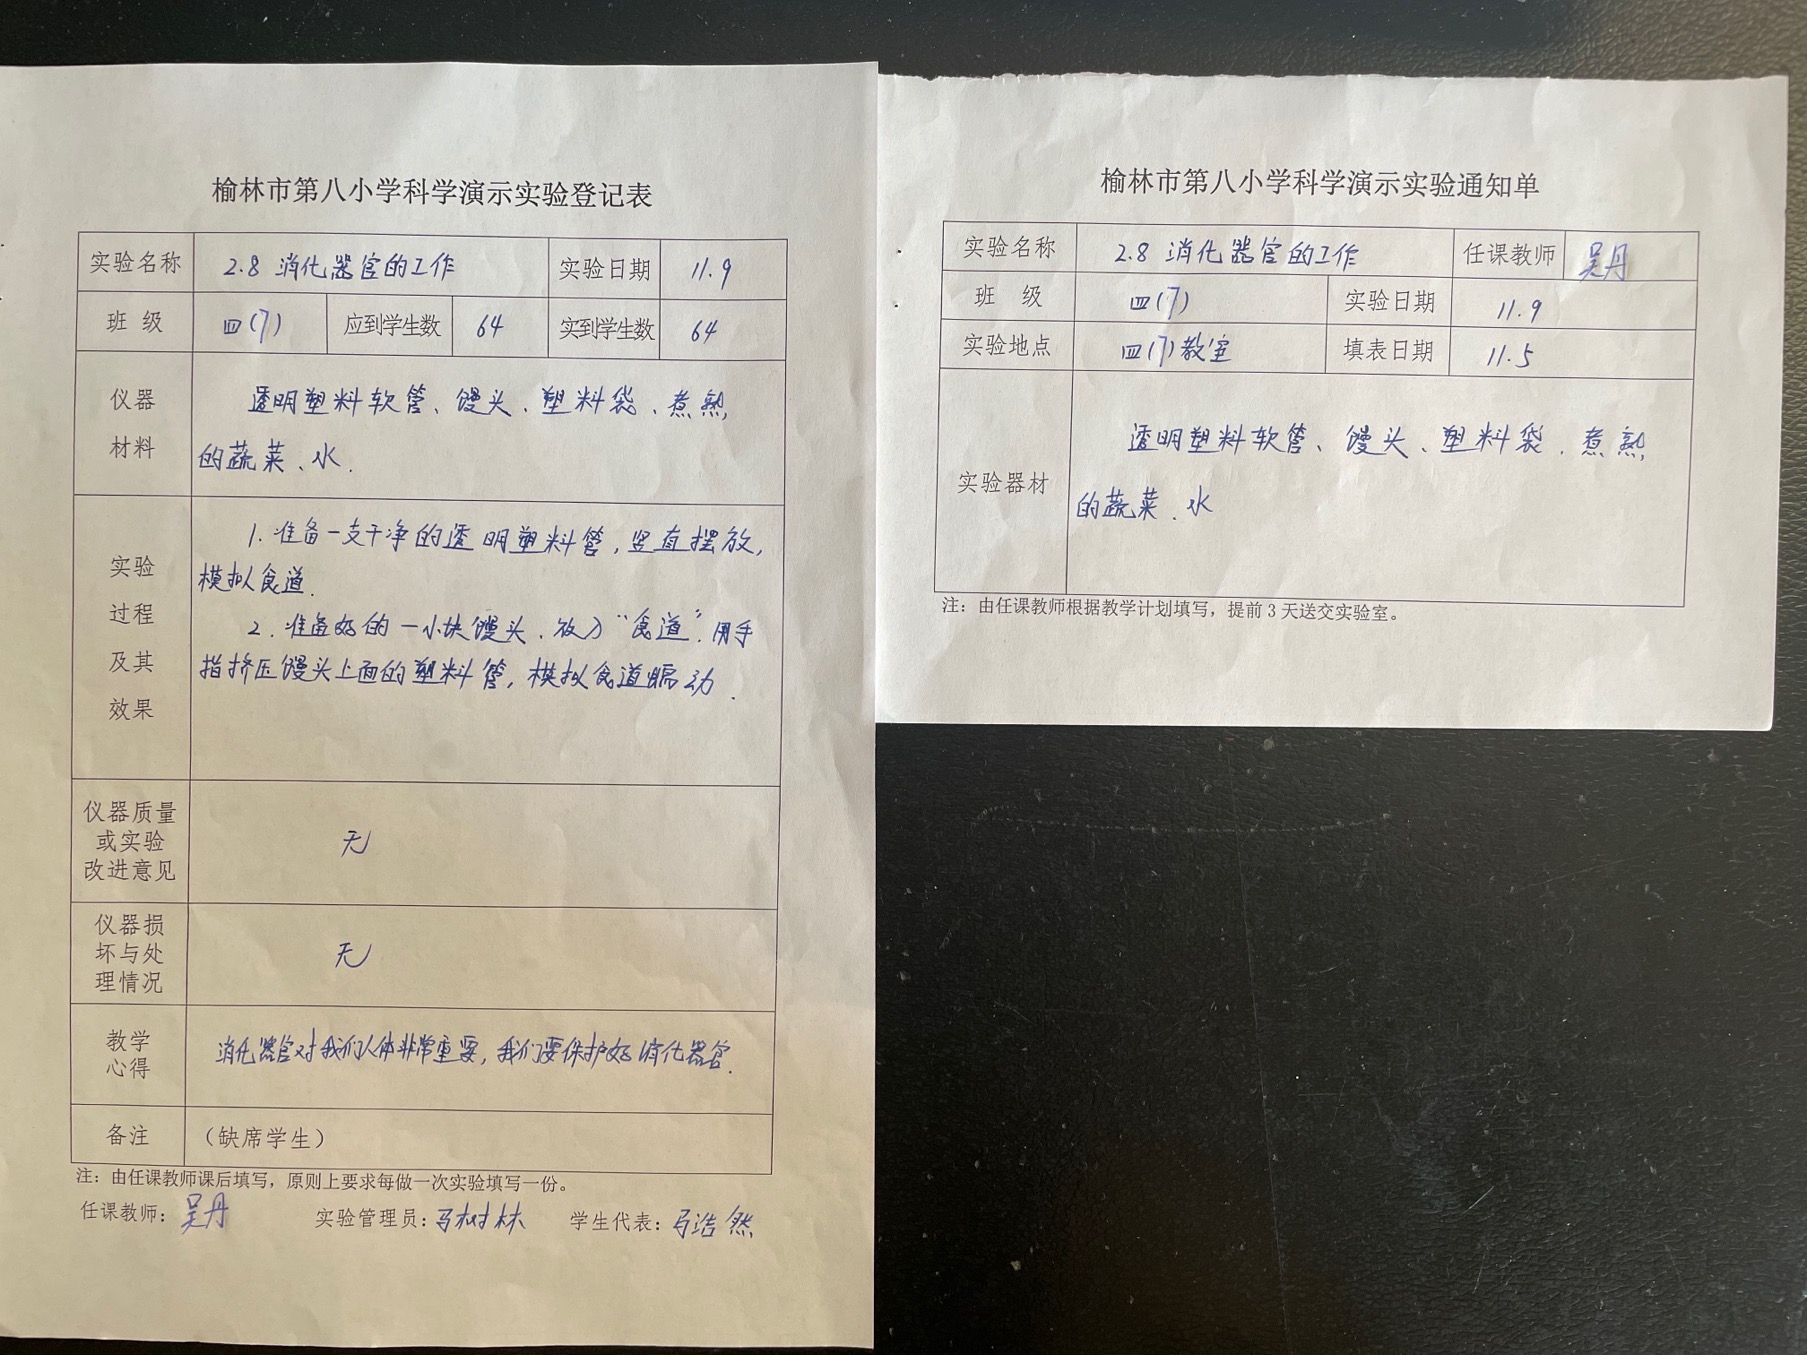 榆林市第八小学科学演示实验登记表
实验名称 2.8 消化器官的工作 实验日期 11.9
班 级 四(7) 应到学生数 64 实到学生数 64
仪器 透明塑料软管、馒头、塑料袋、煮熟
材料 的蔬菜、水.
1. 准备一支干净的透明塑料管,竖直摆放,
实验 模拟食道.
过程 2. 准备好的一小块馒头、放入“食道”.用手
及其 指挤压馒头上面的塑料管,模拟食道蠕动.
效果
仪器质量
或实验 无
改进意见
仪器损
坏与处 无
理情况
教学 消化器官对我们人体非常重要,我们要保护好消化器官.
心得
备注 (缺席学生)
注:由任课教师课后填写,原则上要求每做一次实验填写一份。
任课教师: 吴丹 实验管理员: 马树林 学生代表: 马浩然
榆林市第八小学科学演示实验通知单
实验名称 2.8 消化器官的工作 任课教师 吴丹
班 级 四(7) 实验日期 11.9
实验地点 四(7)教室 填表日期 11.5
透明塑料软管、馒头、塑料袋、煮熟
实验器材 的蔬菜、水
注:由任课教师根据教学计划填写,提前 3 天送交实验室。